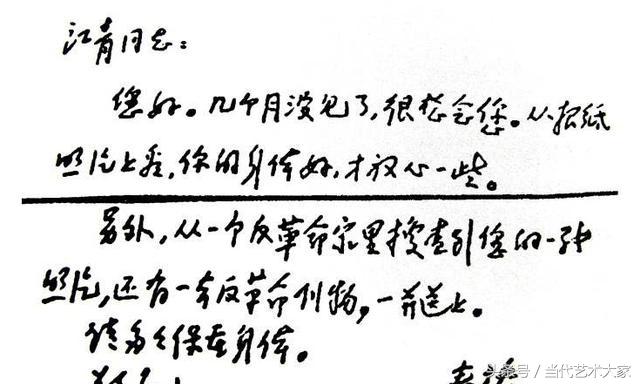 江青同志：
您好。几个月没见了，很想念您。从报纸
照片上看，你的身体好，才放心一些。
另外，从一个反革命家里搜查到您的一张
照片，还有一套反革命刊物，一并送上。
请多多保重身体。
头条号／当代艺术大家